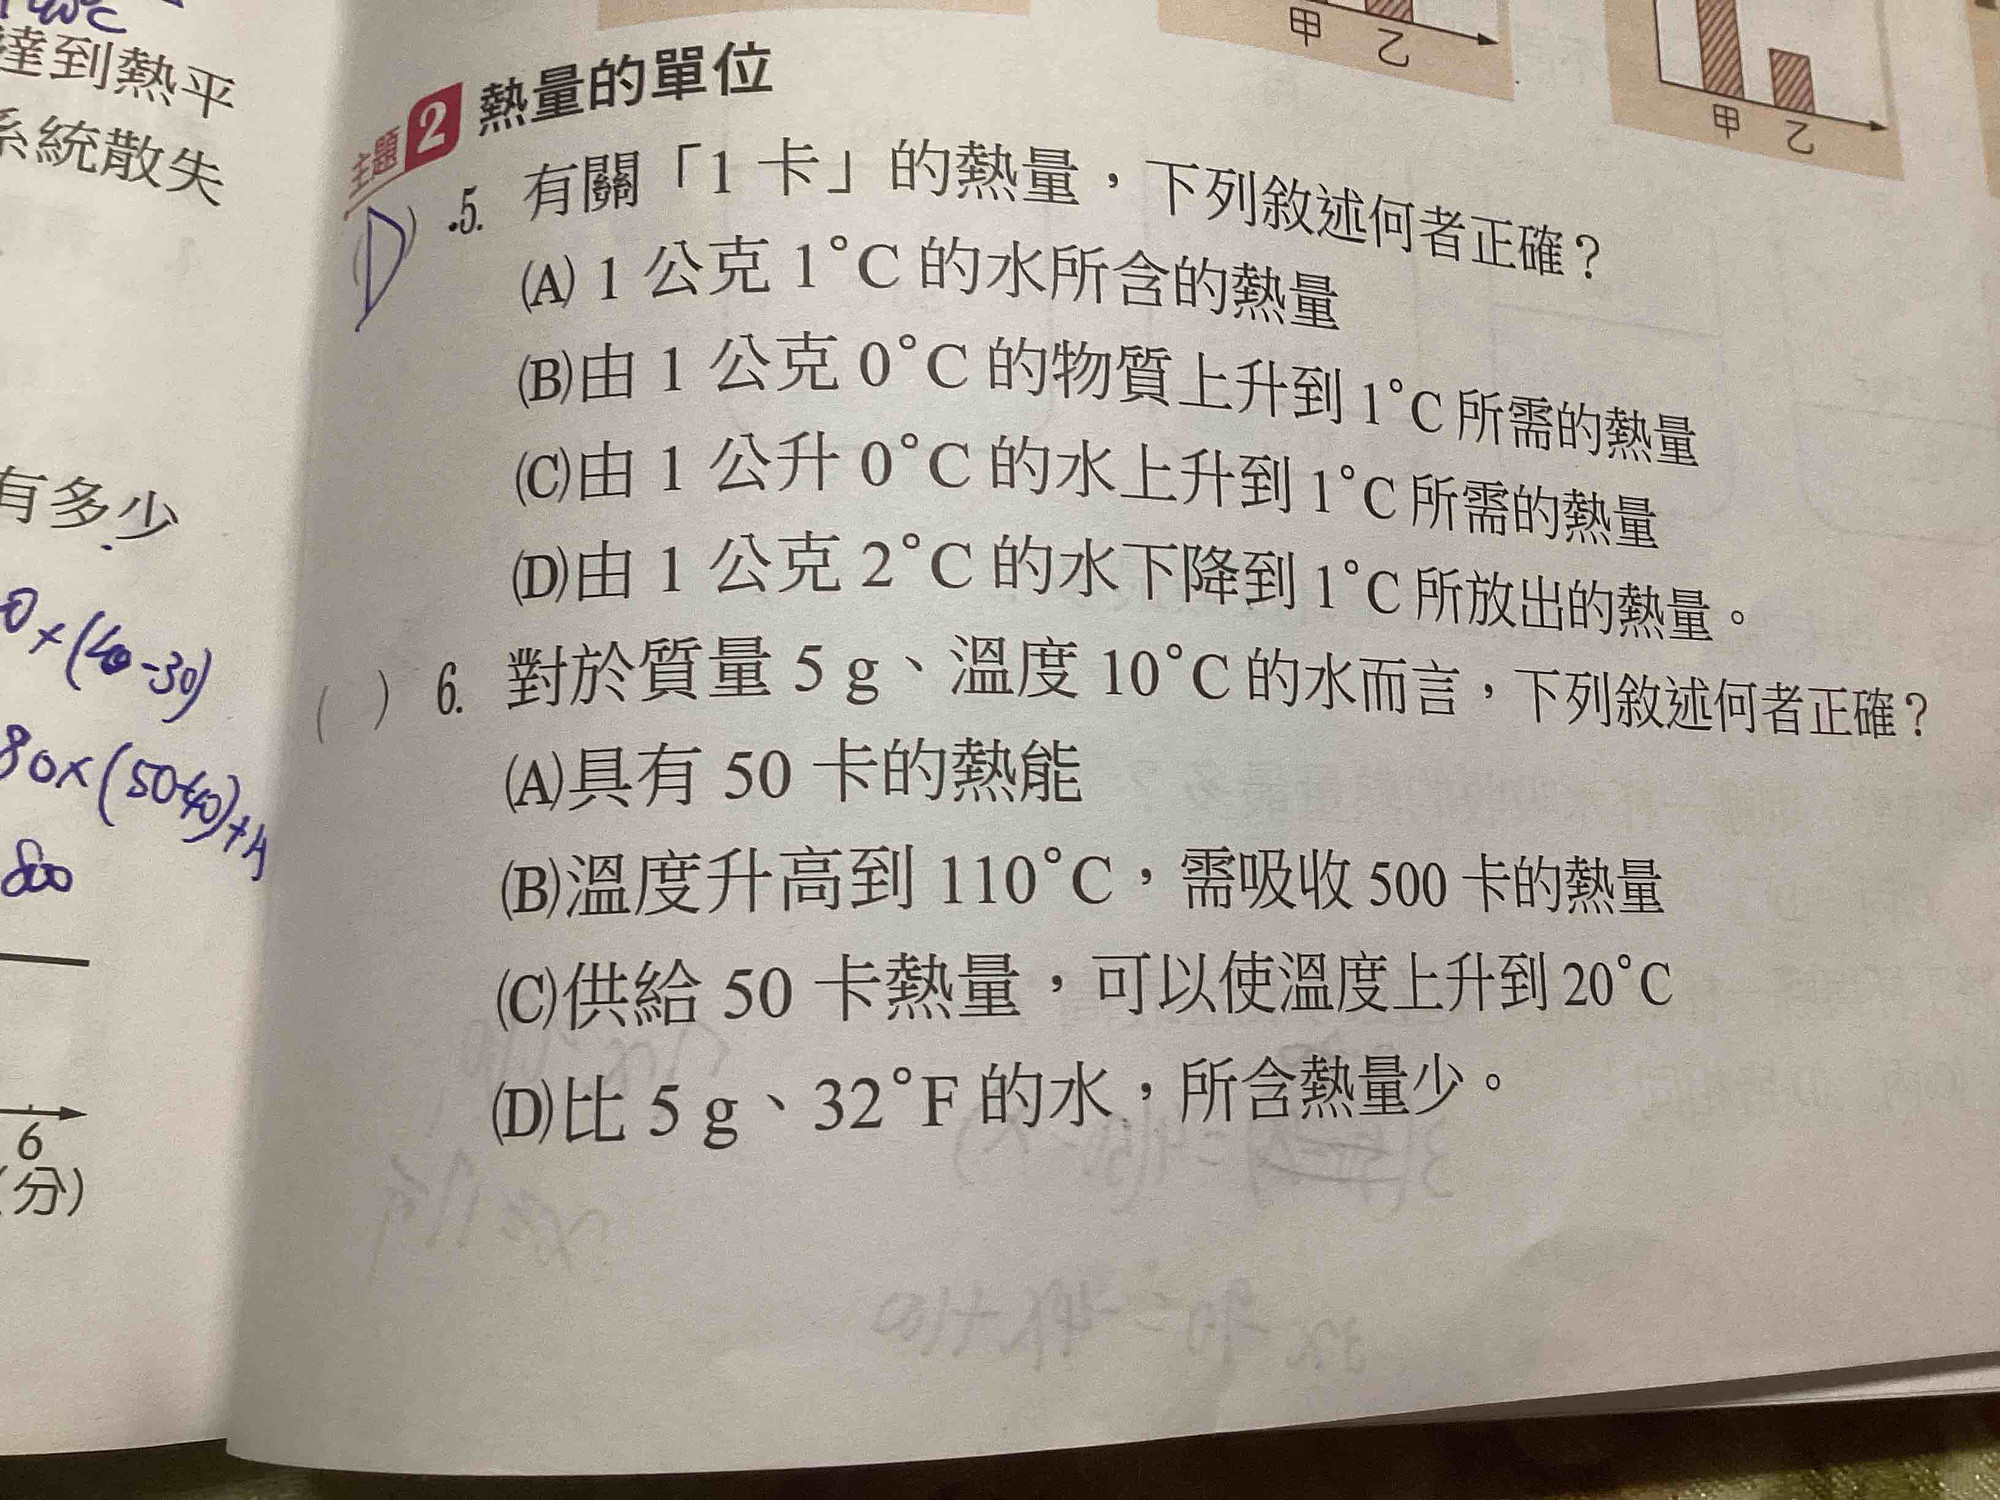 達到熱平
系統散失
有多少
0×(40-30)
80×(50-40)+4
800
6
(分)
甲 乙
甲 乙
主題 2 熱量的單位
(D) .5. 有關「1 卡」的熱量,下列敘述何者正確?
(A) 1 公克 1°C 的水所含的熱量
(B)由 1 公克 0°C 的物質上升到 1°C 所需的熱量
(C)由 1 公升 0°C 的水上升到 1°C 所需的熱量
(D)由 1 公克 2°C 的水下降到 1°C 所放出的熱量。
( ) 6. 對於質量 5 g、溫度 10°C 的水而言,下列敘述何者正確?
(A)具有 50 卡的熱能
(B)溫度升高到 110°C,需吸收 500 卡的熱量
(C)供給 50 卡熱量,可以使溫度上升到 20°C
(D)比 5 g、32°F 的水,所含熱量少。